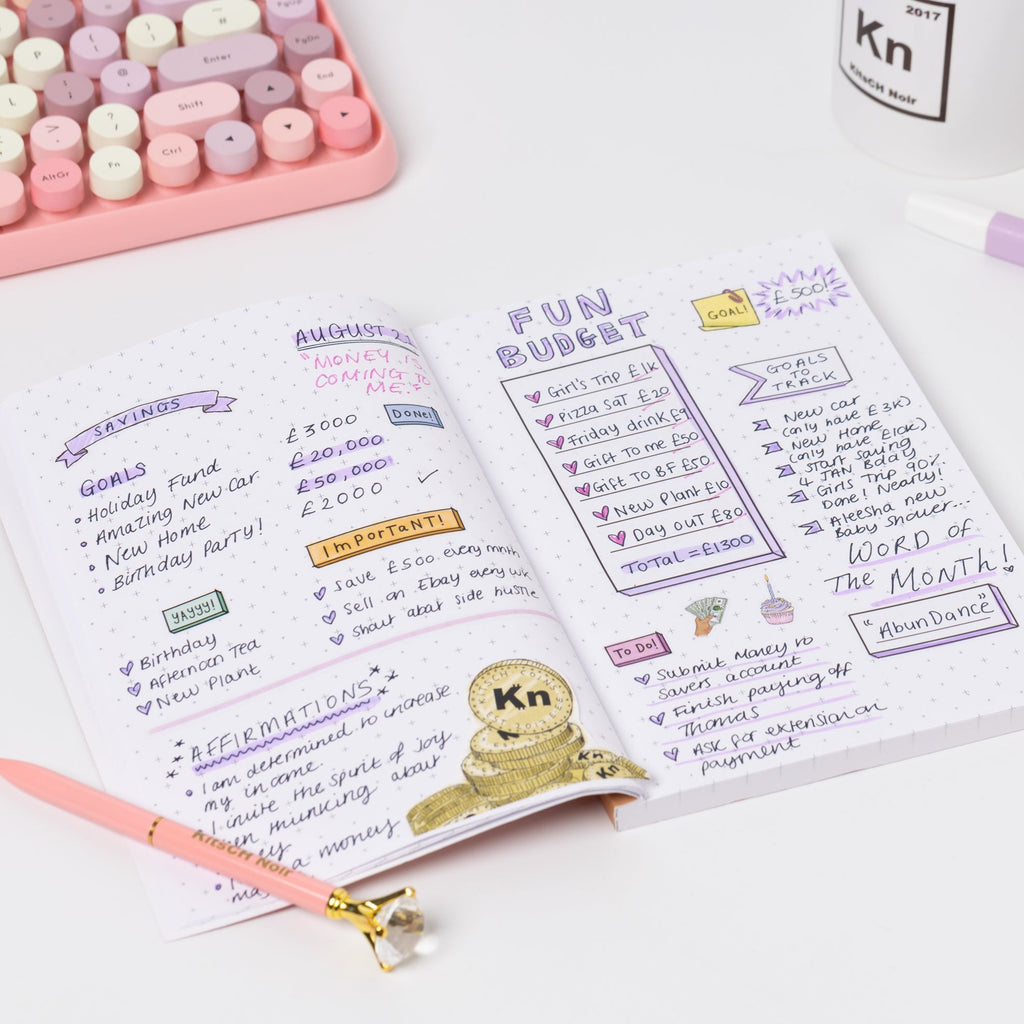 P
L
Enter
Shift
PgUp
PgDn
End
AltGr
Fn
Ctrl
2017
Kn
KitsCH Noir
AUGUST
"MONEY IS
COMING TO
ME"
SAVINGS
GOALS
• Holiday Fund
• Amazing New Car
New Home
• Birthday Party!
£3000
£20,000
£50,000
£2000 ✓
DONE!
ImPorTaNT!
Save £500 every month
Sell on Ebay every wk
Shout about side hustle
YAYYY!
Birthday
Afternoon Tea
New Plant
AFFIRMATIONS
• I am determined to increase
my income
I invite the spirit of Joy
thinking about
a money
Kn
KitsCH Noir
FUN
BUDGET
Girl's Trip £1K
Pizza SaT £20
Friday drink £9
Gift To me £50
Gift To BF £50
New Plant £10
Day ouT £80
ToTaL = £1300
GOAL!
£500!
GOALS
TO
TRACK
New car
(only have £3K)
New Home
(only have £10K)
Start saving
4 JAN Bday
Girls Trip 90%
Done! Nearly!
Aleesha new
Baby shower...
WORD OF
THE MONTH!
"AbunDance"
To Do!
Submit Money to
savers account
Finish paying off
Thomas
Ask for extension on
payment